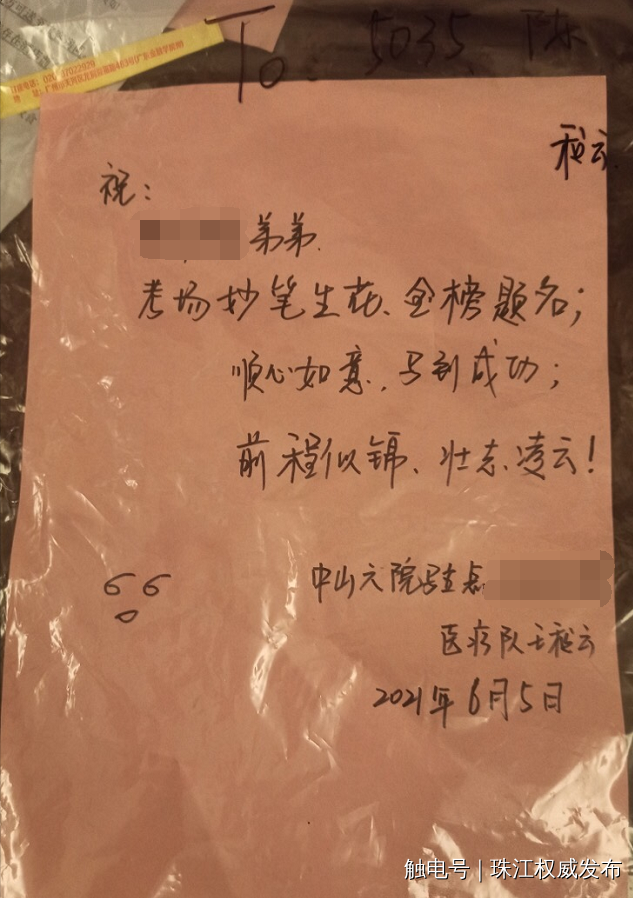 To: 5035 陈
祝:
弟弟.
考场妙笔生花、金榜题名;
顺心如意、马到成功;
前程似锦、壮志凌云!
中山六院驻点
医疗队王
2021年6月5日
触电号|珠江权威发布